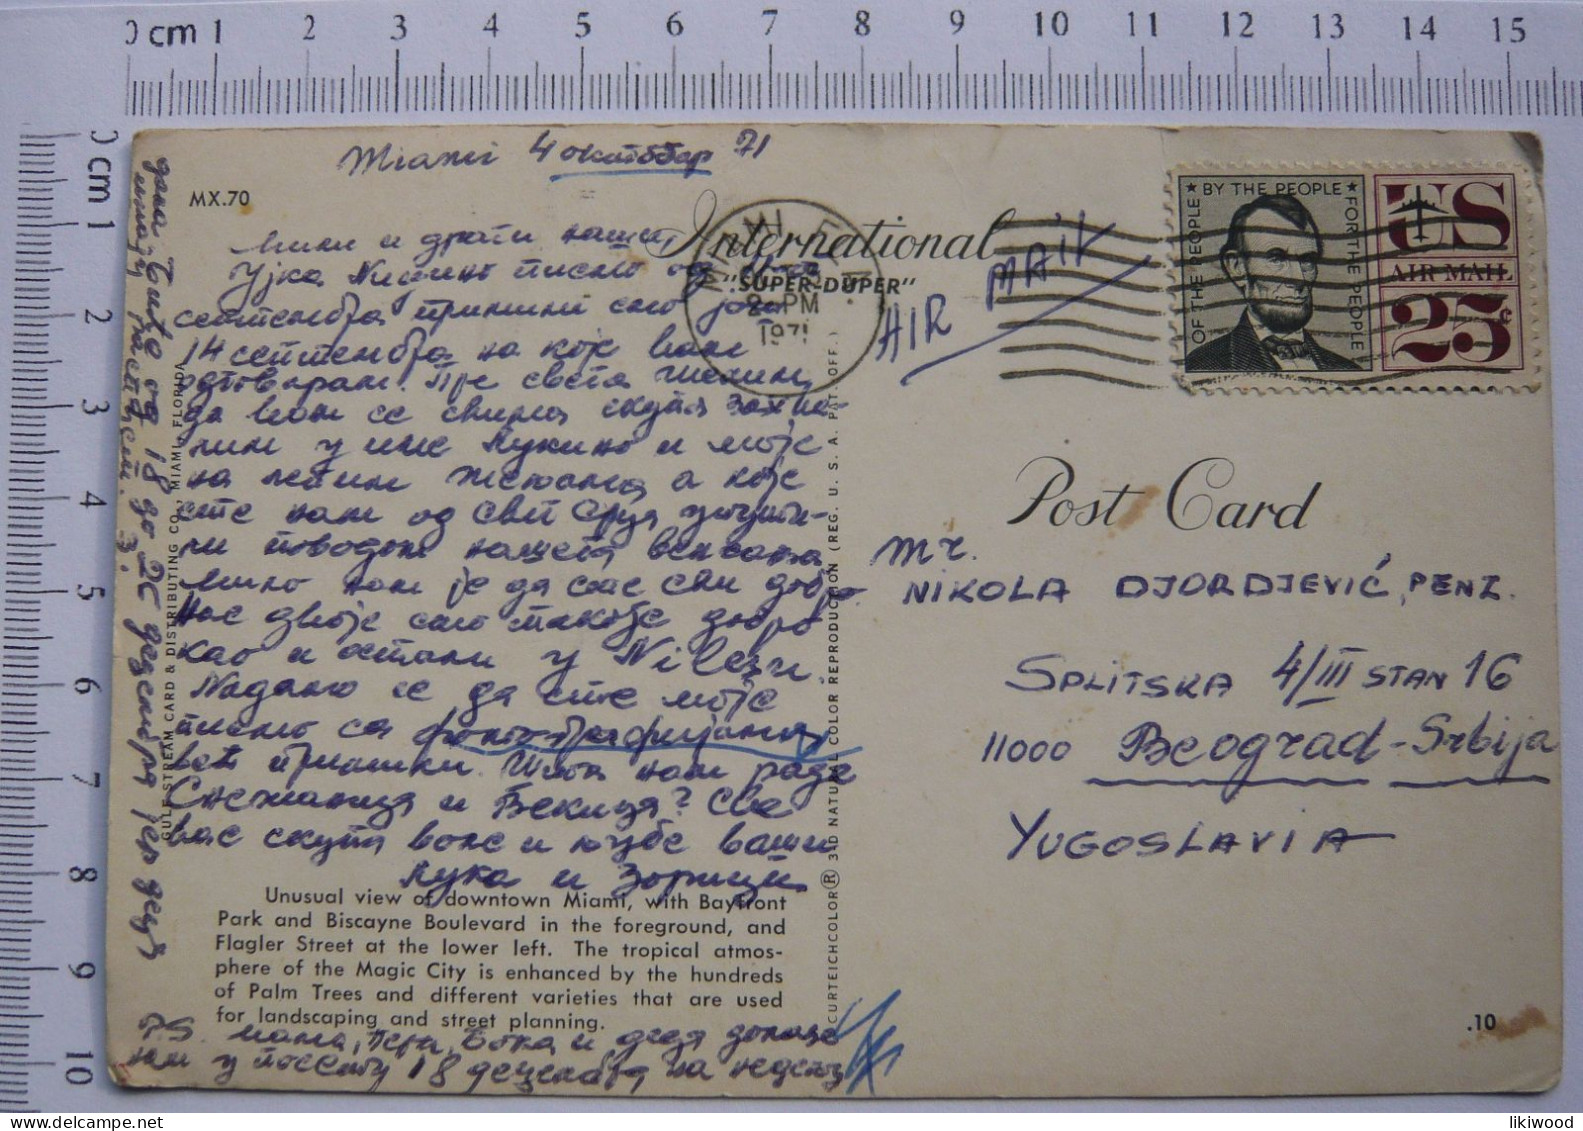 0 cm 1 2 3 4 5 6 7 8 9 10 11 12 13 14 15
0 cm 1 2 3 4 5 6 7 8 9 10
Miami 4 октобар 71
MX.70
International
"SUPER-DUPER"
8 PM
1971
AIR MAIL
★ BY THE PEOPLE ★
OF THE PEOPLE
FOR THE PEOPLE
US
AIR MAIL
25¢
Мили и драги наши,
Ујка писмо од
септембра примили смо још
14 септембра на које вам
одговарам. Пре свега желим
да вам се свима скупа захва-
лим у име Лукино и моје
на лепим жељама а које
сте нам од свег срца упути-
ли поводом нашега венчања
Мило нам је да сте сви добро.
Нас двоје смо такође добро
као и остали у
Надамо се да сте моје
писмо са фотографијама
већ примили. Шта нам раде
Снежаница и Бекица? Све
вас скупа воле и љубе ваши
Лука и Зорица
Post Card
Mr.
NIKOLA DJORDJEVIĆ, PENZ.
SPLITSKA 4/III STAN 16
11000 Beograd-Srbija
YUGOSLAVIA
Unusual view of downtown Miami, with Bayfront
Park and Biscayne Boulevard in the foreground, and
Flagler Street at the lower left. The tropical atmos-
phere of the Magic City is enhanced by the hundreds
of Palm Trees and different varieties that are used
for landscaping and street planning.
P.S. мама, Пера, Бока и деда долазе
нам у посету 18 децембра на недељу
дана биће од 18 до 26 децембра јер деца
имају распуст. З.
GULF STREAM CARD & DISTRIBUTING CO., MIAMI, FLORIDA
CURTEICHCOLOR® 3-D NATURAL COLOR REPRODUCTION (REG. U. S. A. PAT. OFF.)
.10
likiwood